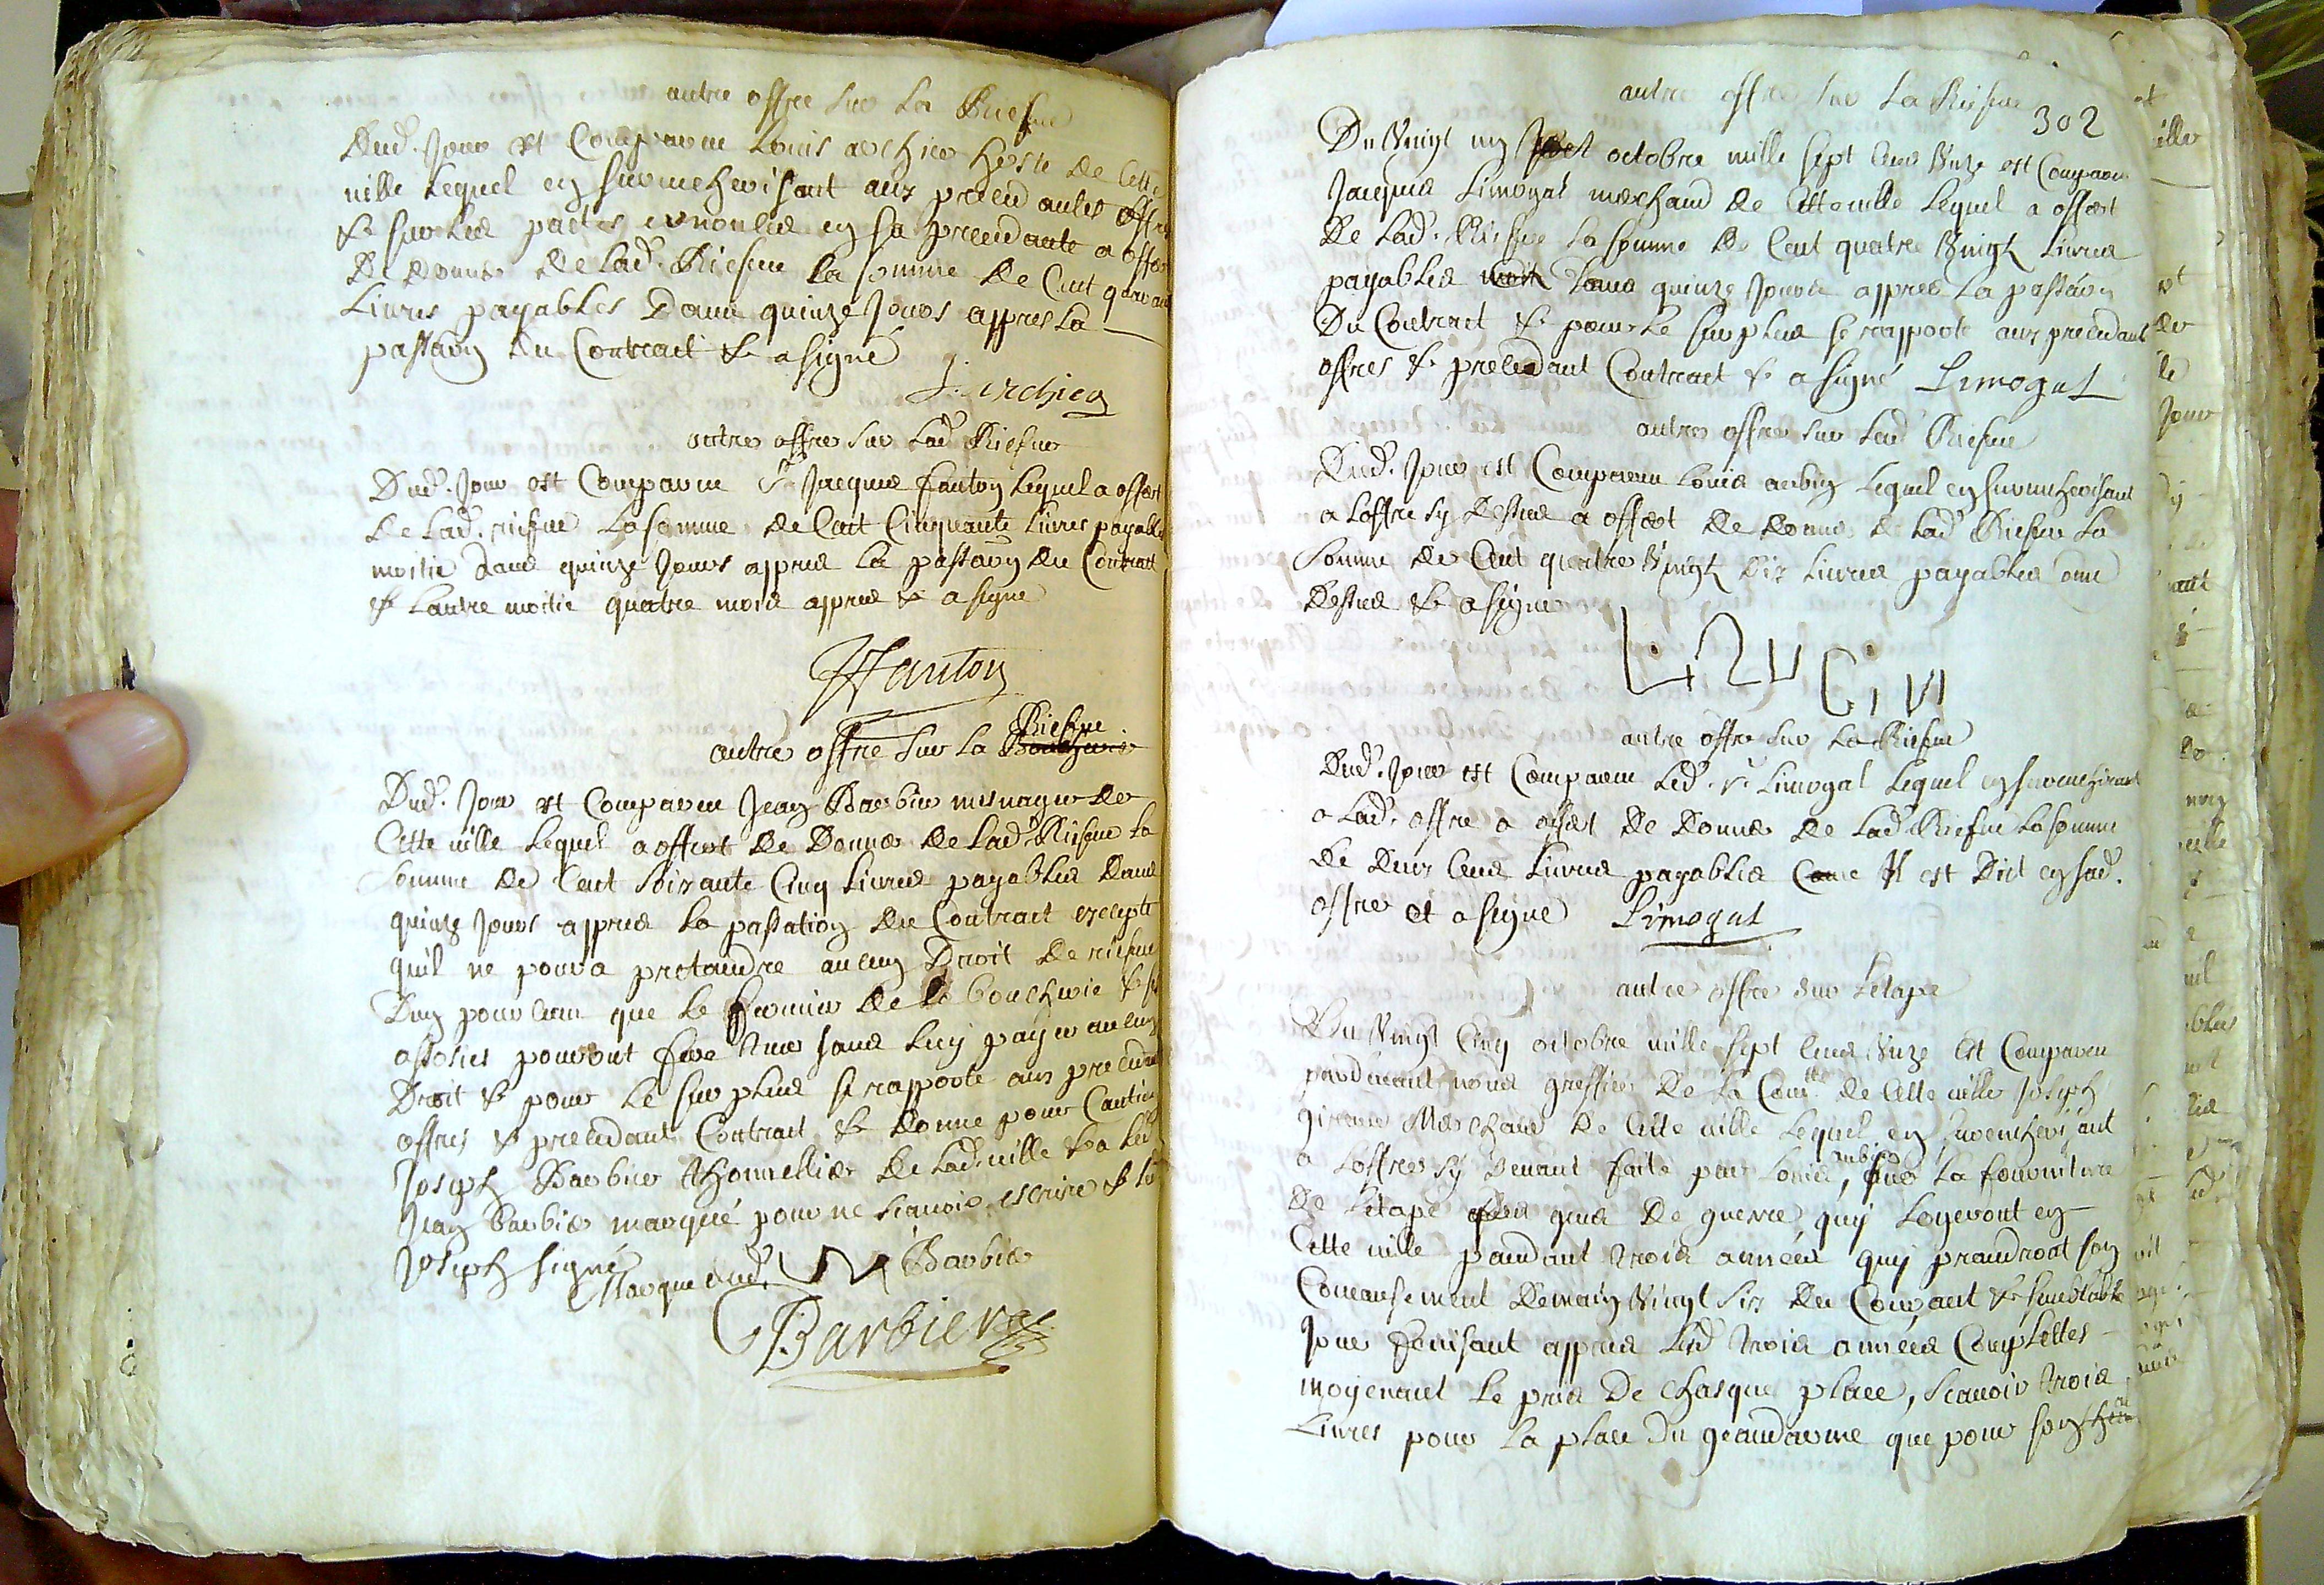 autre offre sur la Riefve
Dud. Jour est Compareu Louis archier hoste de Cette
ville Lequel en surencherissant aux precedantes offres
& sur les pactes enoncées en sa precedante a offert
De donner de lad. Riefve la somme de Cent quarante
Livres payables Dans quinze Jours appres la
passaon du Contract & a signé
L. Archier
autre offre sur lad. Riefve
Dud. Jour est Compareu Sr Jacques fanton Lequel a offert
de lad. riefve la somme de Cent Cinquante livres payables
moitie dans quinze Jours appres la passaon du Contract
& lautre moitie quatre mois appres & a signe
JFanton
autre offre sur la Boucherie Riefve
Dud. Jour est Compareu Jean Barbier mesnager de
Cette ville Lequel a offert de Donner de lad. Riefve la
somme de Cent Soixante Cinq Livres payables Dans
quinze Jours appres la passation du Contract excepté
quil ne pourra pretandre aucun Droit de riefve
Dun pourceau que le fermier de la boucherie & ses
assosies pourront fere tuer sans luy payer aucun
Droit & pour le surplus se rapporte aux precedantes
offres & precedant Contract & donne pour Caution
Joseph Barbier Thonnellier de lad. ville & a led.
Jean barbier marqué pour ne scavoir escrire & led.
Joseph signé
Marque dud. Barbier
Barbier
autre offre sur la Riefve
302
Du Vingt un octobre mille sept Cens Unze est Compareu
Jacques Limogal marchand de Cette ville Lequel a offert
De Lad. Riefve la somme De Cent quatre Vingts livres
payables dans quinze Jours appres la passaon
Du Contract & pour le surplus se rapporte aux precedants
offres & precedant Contract & a signé Limogal
autre offre sur lad. Riefve
Dud. Jour est Compareu Louis aubin Lequel en surencherissant
a Loffre sy dessus a offert de donner de lad. Riefve la
somme de Cent quatre Vingts dix Livres payables come
dessus & a signe
autre offre sur la Riefve
Dud. Jour est Compareu Led. Sr Limogal Lequel en surencherissant
a lad. offre a offert de donner de lad. Riefve la somme
de Deux Cens Livres payables Come Il est Dit en sad.
offre et a signe Limogal
autre offre sur Letape
Du Vingt Cinq octobre mille sept Cens Unze Est Compareu
pardevant nous greffier de la Comte de Cette ville Joseph
Marchand de Cette ville Lequel en surencherissant
a Loffre sy Devant faite par Louis, aubin sur la fourniture
de Letape des gens De guerre quy Logeront en
Cette ville pandant trois années quy prandront son
Comansement demain Vingt six du Courant & semblable
Jour finissant appres lesd. trois années Complettes
moyenant le prix De chasque place, scavoir trois
Livres pour la place du geandarme que pour son